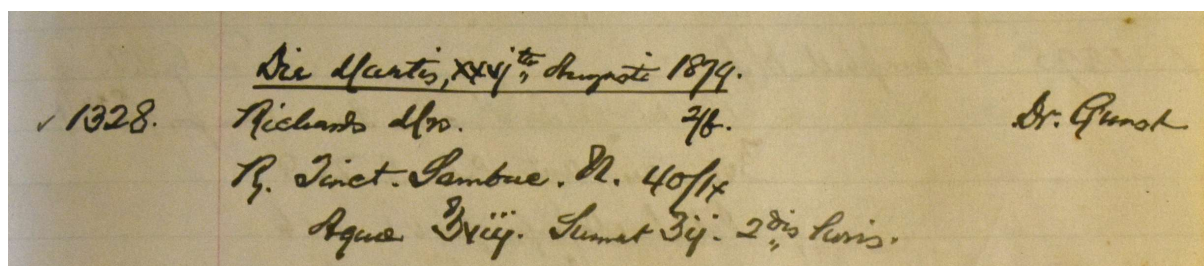 Die Martis, xxvjto Augusti 1879.
✓ 1328. Richards Mrs. 2/6. Dr. Gunst
℞. Tinct. Sambuc. N. 40/1x
Aquae ℥viij. Sumat ʒij. 2dis horis.